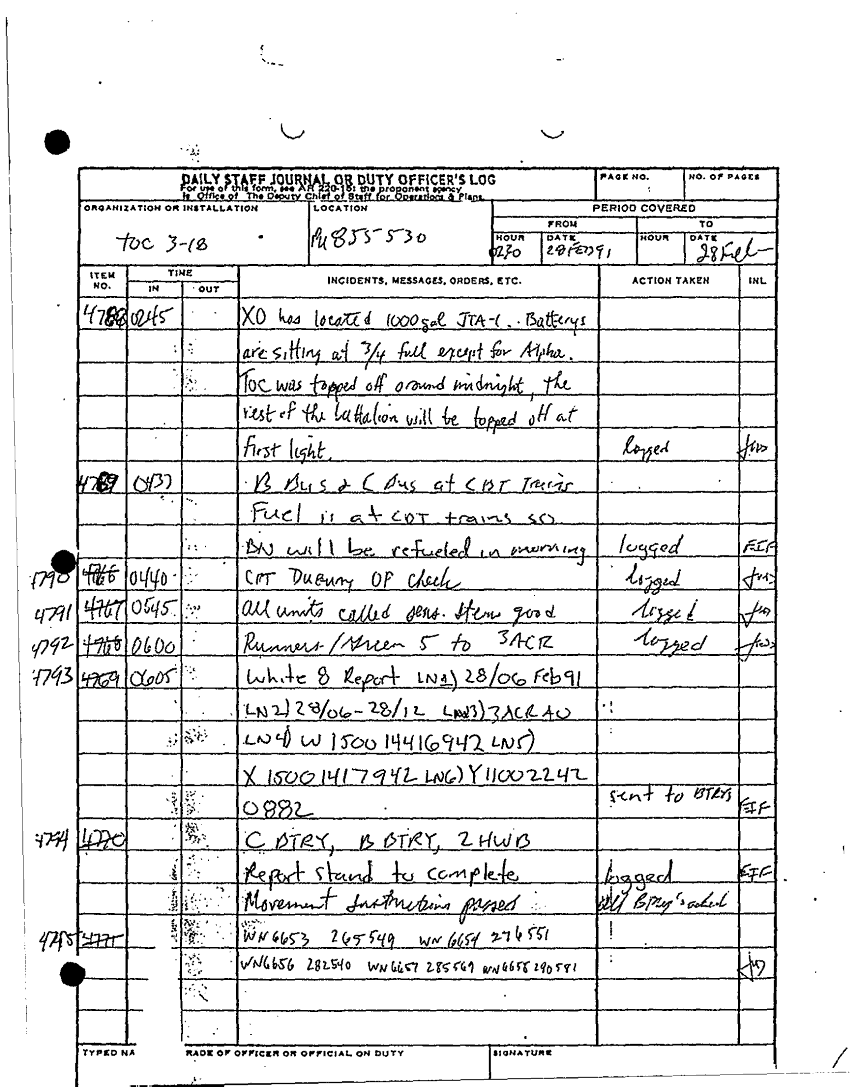 DAILY STAFF JOURNAL OR DUTY OFFICER'S LOG
For use of this form, see AR 220-15; the proponent agency
is Office of The Deputy Chief of Staff for Operations & Plans.
PAGE NO.
NO. OF PAGES
ORGANIZATION OR INSTALLATION
TOC 3-18
LOCATION
PU 855-530
PERIOD COVERED
FROM
TO
HOUR
0230
DATE
28 FEB 91
HOUR
DATE
28 Feb
ITEM NO.
TIME
IN
OUT
INCIDENTS, MESSAGES, ORDERS, ETC.
ACTION TAKEN
INL
4788 0245 XO has located 1000 gal JTA-1.. Batterys
are sitting at 3/4 full except for Alpha.
TOC was topped off around midnight, the
rest of the battalion will be topped off at
first light. logged
4789 0437 B Bus & C Bus at CBT Trains
Fuel is at CBT trains so
BN will be refueled in morning logged EIF
4790 4766 0440 CPT OP check logged
4791 4767 0545 All units called sens. items good logged
4792 4768 0600 Runners / Green 5 to 3ACR logged
4793 4769 0605 White 8 Report LN1) 28/06 Feb 91
LN2) 28/06-28/12 LN3) 3ACR AO
LN4) W 150014416942 LN5)
X 15001417942 LN6) Y11002242
0882 sent to BTRYS EIF
4794 4770 C BTRY, B BTRY, 2 HWB
Report stand to complete logged EIF
Movement Instructions passed all Btry's acked
4795 3771 WN6653 265549 WN6654 276551
WN6656 282540 WN6657 285569 WN6658 290581
TYPED NA
RADE OF OFFICER OR OFFICIAL ON DUTY
SIGNATURE